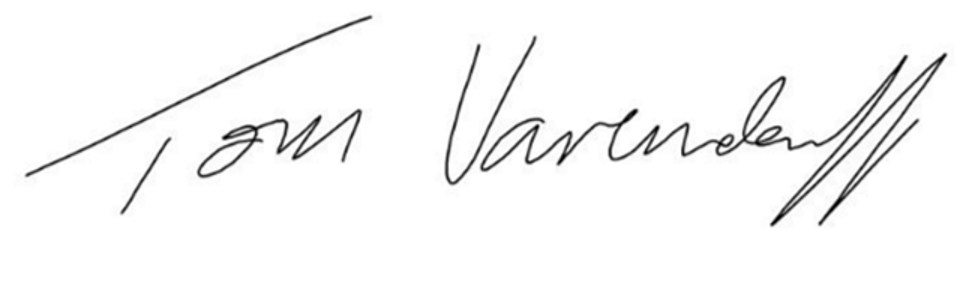 Tom Varendorff